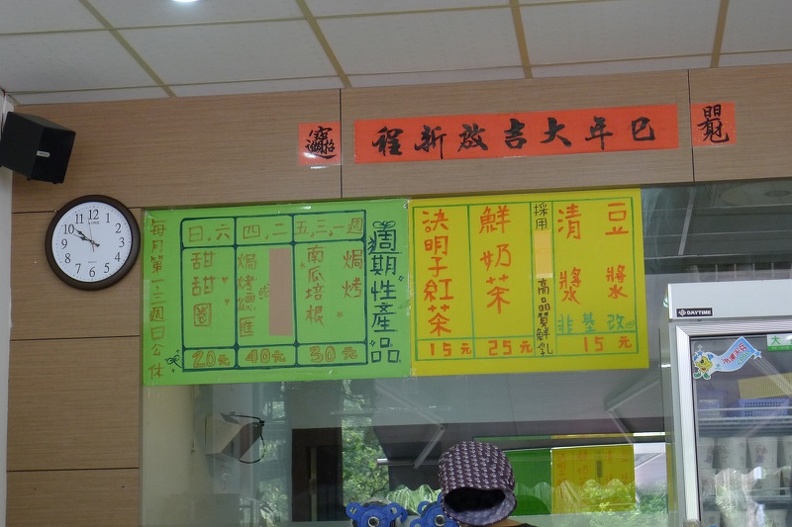 巳年大吉啟新程
週期性產品
週一,三,五
焗烤
南瓜培根
30元
二,四
焗烤
40元
六,日
甜甜圈
20元
每月第一三週日公休
豆漿
清漿
非基改
15元
採用
高品質鮮乳
鮮奶茶
25元
決明子紅茶
15元
DAYTIME
大
12